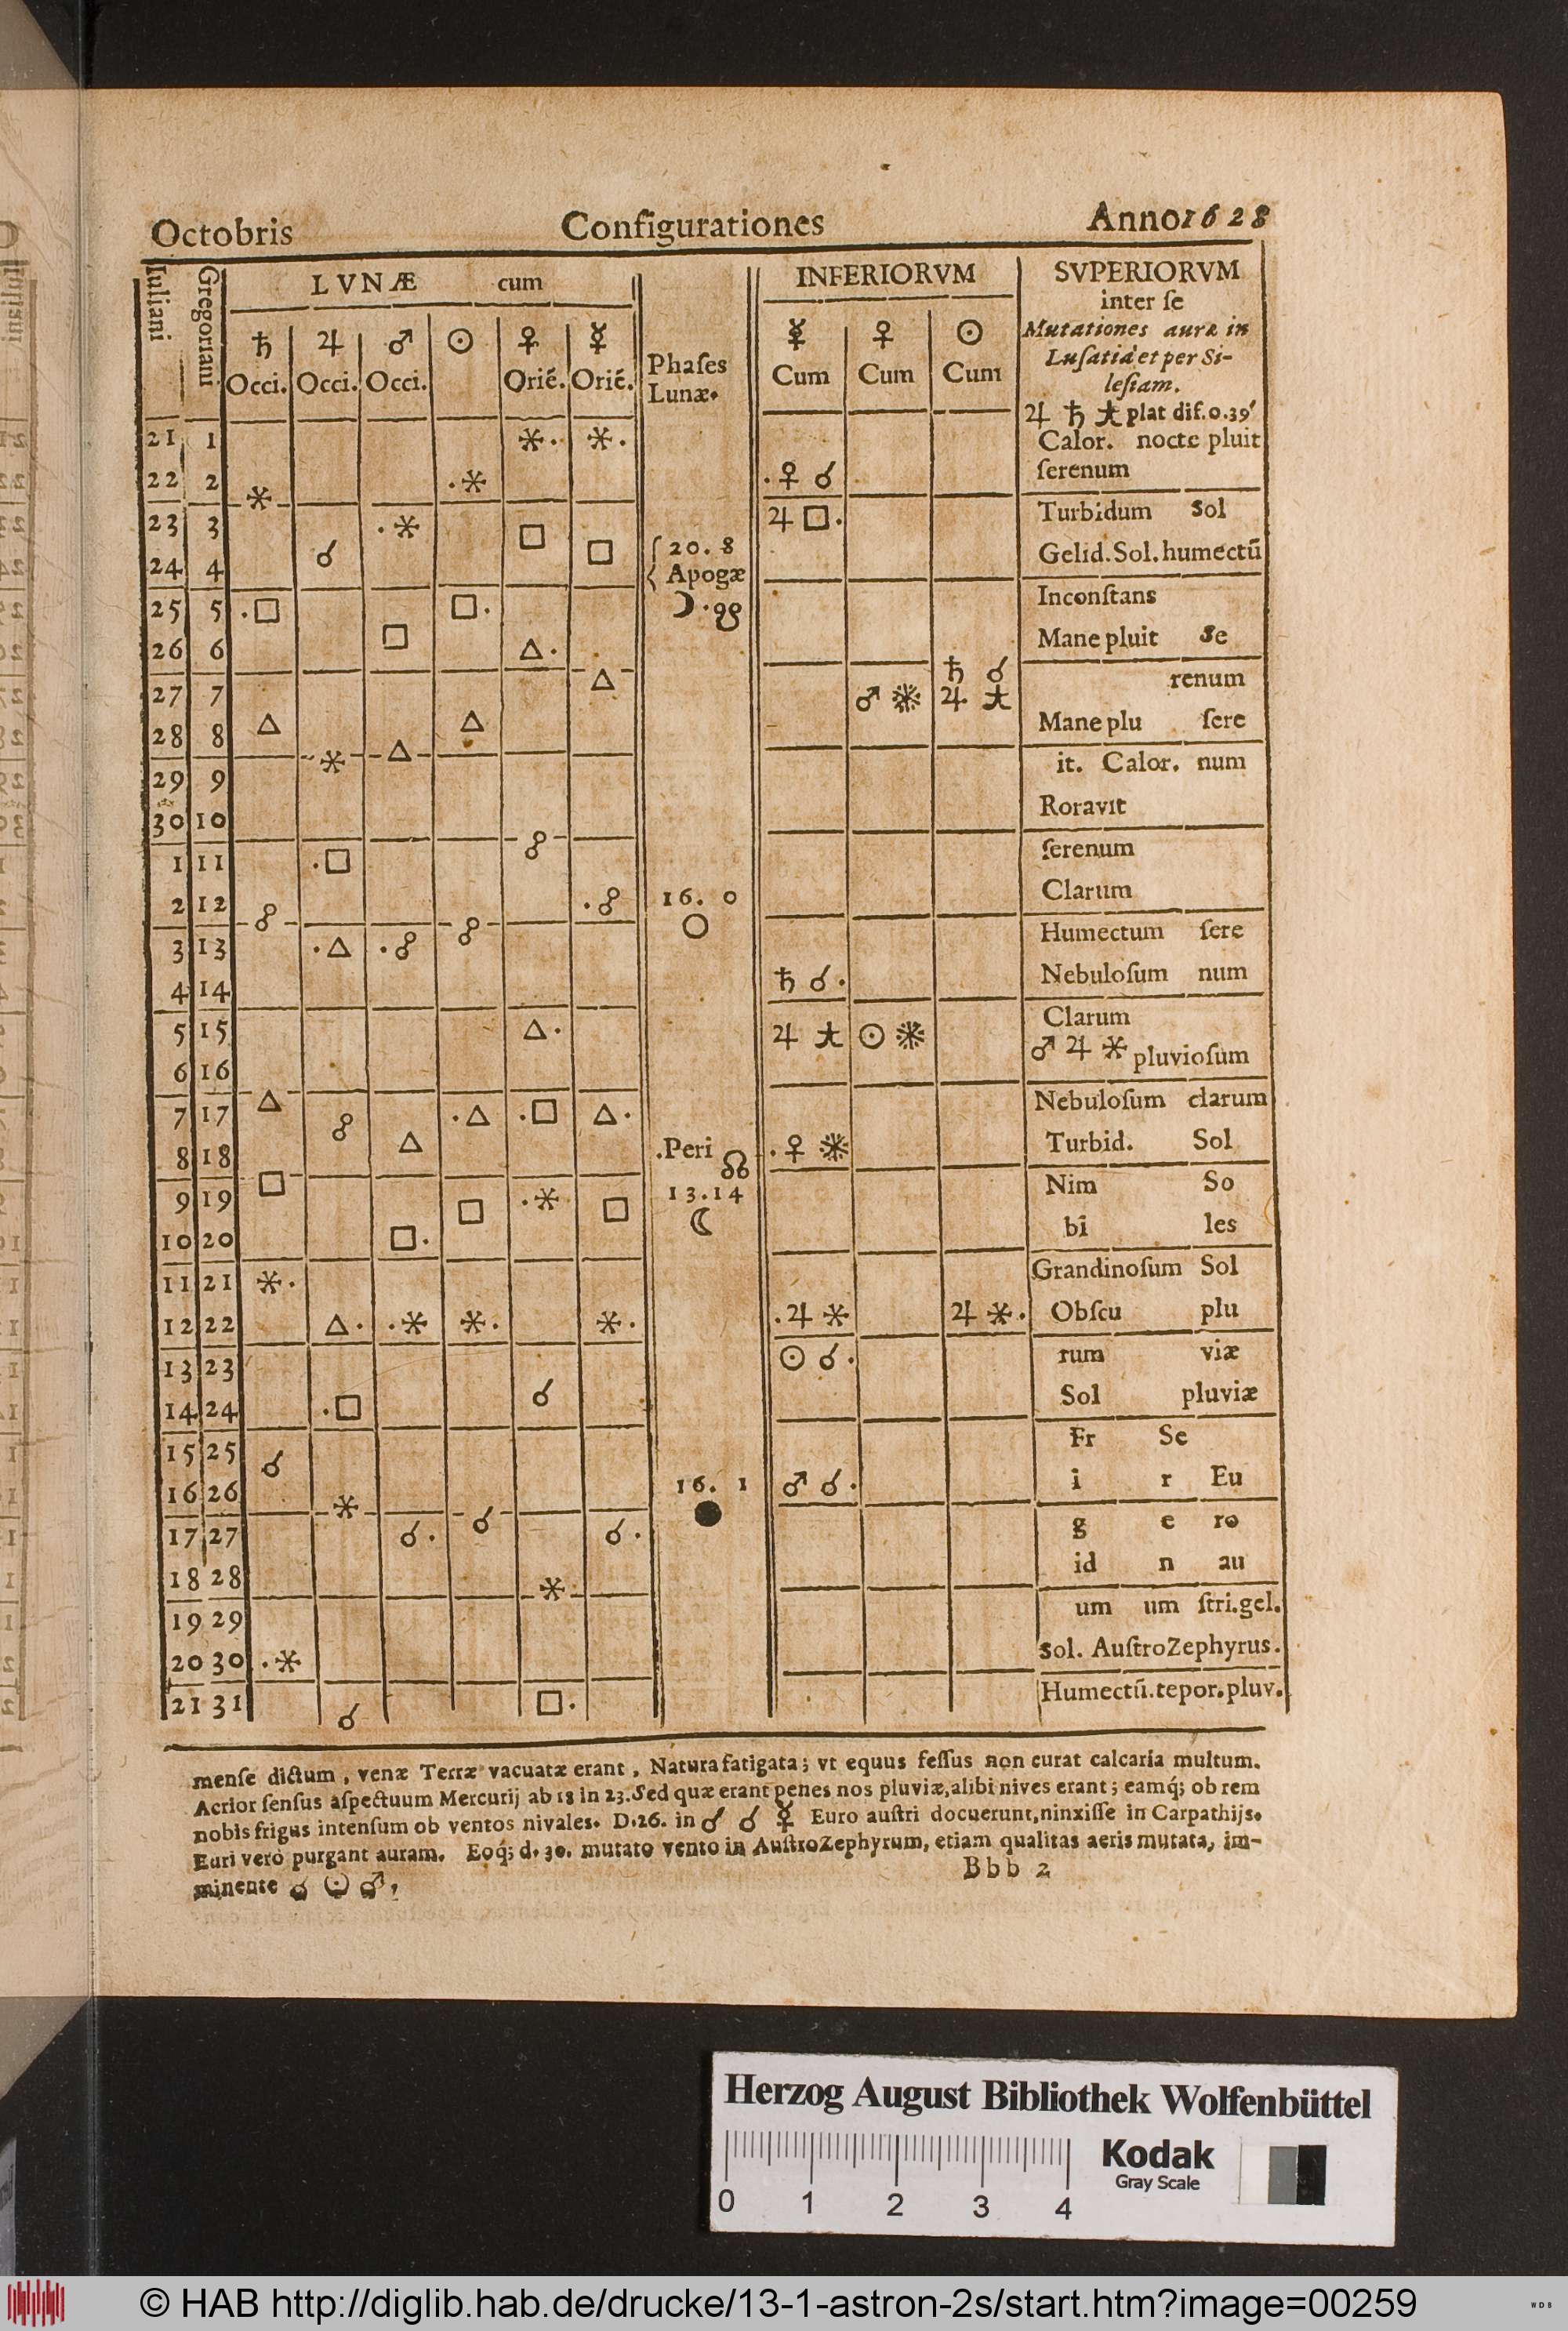 Octobris Configurationes Anno 1628
Iuliani Gregoriani LVNÆ cum Phaſes Lunæ. INFERIORVM SVPERIORVM
inter ſe
Mutationes auræ in
Luſatia et per Si-
leſiam.
♄ ♃ ♂ ☉ ♀ ☿ ☿ ♀ ☉
Occi. Occi. Occi. Orié. Orié. Cum Cum Cum
♃ ♄ plat diſ. 0. 39'
21 1 ⚹. ⚹. Calor. nocte pluit
22 2 ⚹ .⚹ .♀ ☌ ſerenum
23 3 .⚹ □ ♃ □. Turbidum Sol
24 4 ☌ □ 20. 8 Apogæ Gelid. Sol. humectū
25 5 .□ □. ☽.☋ Inconſtans
26 6 □ △. Mane pluit Se
27 7 △ ♂ ♃ ♄ ☌ renum
28 8 △ △ △ Mane plu ſere
29 9 ⚹ it. Calor. num
30 10 Roravit
1 11 .□ ☍ ſerenum
2 12 ☍ .☍ 16. 0 ○ Clarum
3 13 .△ .☍ ☍ Humectum ſere
4 14 ♄ ☌. Nebuloſum num
5 15 △. ♃ ☉ Clarum
6 16 ♂ ♃ ⚹ pluvioſum
7 17 △ .△ .□ △. Nebuloſum clarum
8 18 ☍ △ .Peri ☊ .♀ Turbid. Sol
9 19 □ □ .⚹ □ 13. 14 Nim So
10 20 □. ☾ bi les
11 21 ⚹. Grandinoſum Sol
12 22 △. .⚹ ⚹. ⚹. .♃ ⚹ ♃ ⚹. Obſcu plu
13 23 ☉ ☌. rum viæ
14 24 .□ ☌ Sol pluviæ
15 25 ☌ Fr Se
16 26 ⚹ 16. 1 ● ♂ ☌. i r Eu
17 27 ☌. ☌ ☌. g e ro
18 28 ⚹ id n au
19 29 um um ſtri. gel.
20 30 .⚹ Sol. AuſtroZephyrus.
21 31 ☌ □. Humectū. tepor. pluv.
menſe dictum, venæ Terræ vacuatæ erant, Natura fatigata; vt equus feſſus non curat calcaria multum.
Acrior ſenſus aſpectuum Mercurij ab 18 in 23. Sed quæ erant penes nos pluviæ, alibi nives erant; eamq; ob rem
nobis frigus intenſum ob ventos nivales. D. 26. in ♂ ☌ ☿ Euro auſtri docuerunt, ninxiſſe in Carpathijs.
Euri verò purgant auram. Eoq; d. 30. mutato vento in AuſtroZephyrum, etiam qualitas aeris mutata, im-
minente ☌ ☉ ♂,
Bbb 2
Herzog August Bibliothek Wolfenbüttel
Kodak
Gray Scale
0 1 2 3 4
© HAB http://diglib.hab.de/drucke/13-1-astron-2s/start.htm?image=00259
WDB